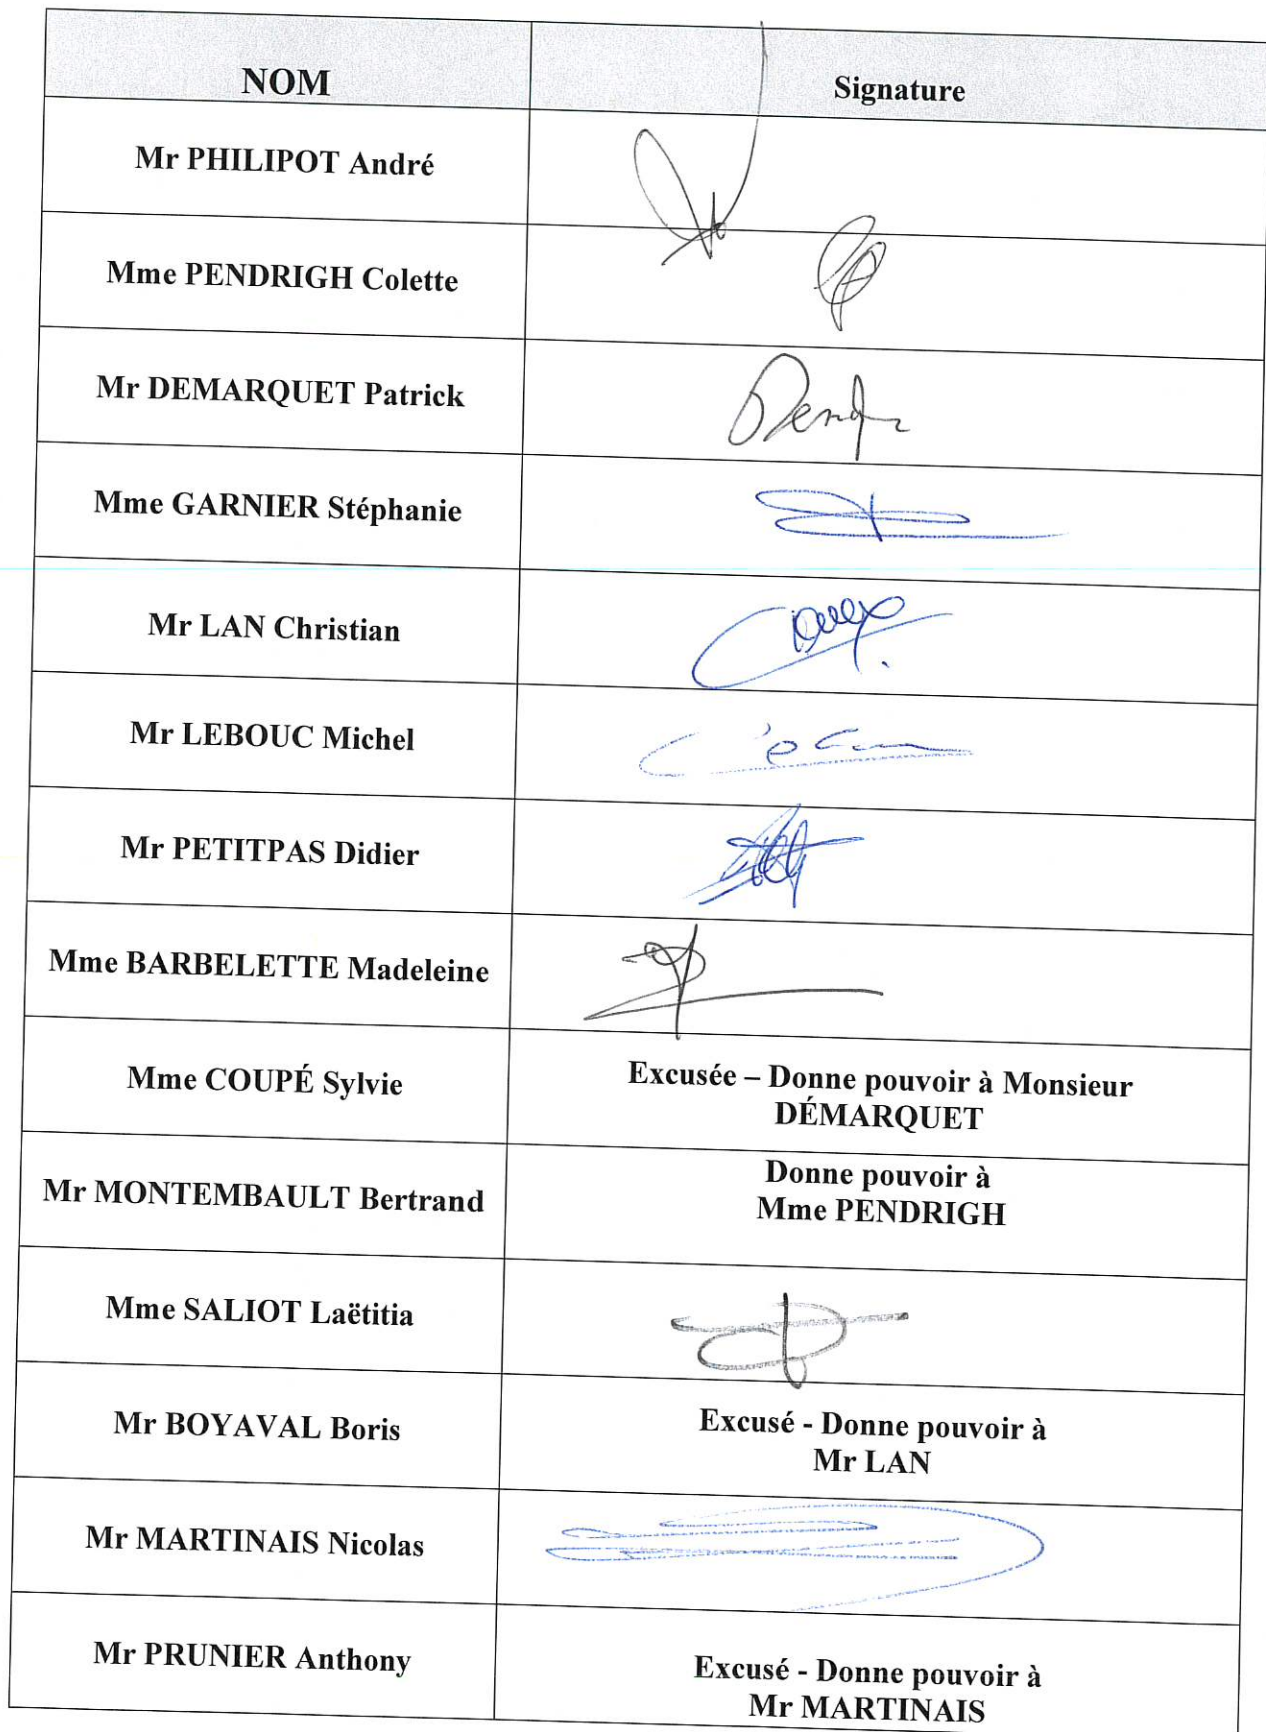 NOM
Signature
Mr PHILIPOT André
Mme PENDRIGH Colette
Mr DEMARQUET Patrick
Mme GARNIER Stéphanie
Mr LAN Christian
Mr LEBOUC Michel
Mr PETITPAS Didier
Mme BARBELETTE Madeleine
Mme COUPÉ Sylvie
Excusée – Donne pouvoir à Monsieur
DÉMARQUET
Mr MONTEMBAULT Bertrand
Donne pouvoir à
Mme PENDRIGH
Mme SALIOT Laëtitia
Mr BOYAVAL Boris
Excusé - Donne pouvoir à
Mr LAN
Mr MARTINAIS Nicolas
Mr PRUNIER Anthony
Excusé - Donne pouvoir à
Mr MARTINAIS